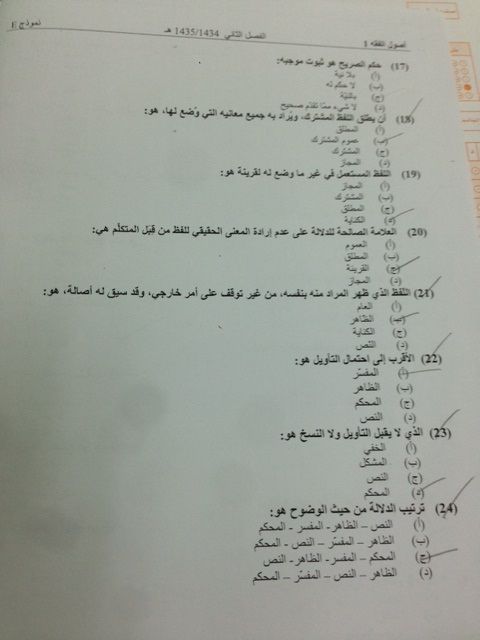 أصول الفقه 1 الفصل الثاني 1435/1434 هـ نموذج E
(17) حكم الصريح هو ثبوت موجبه:
(أ) بلا نية
(ب) لا حكم له
(ج) بالنيّة
(د) لا شيء ممّا تقدّم صحيح
(18) أن يطلق اللفظ المشترك، ويُراد به جميع معانيه التي وُضع لها، هو:
(أ) المطلق
(ب) عموم المشترك
(ج) المشترك
(د) المجاز
(19) اللفظ المستعمل في غير ما وضع له لقرينة هو:
(أ) المجاز
(ب) المشترك
(ج) المطلق
(د) الكناية
(20) العلامة الصالحة للدلالة على عدم إرادة المعنى الحقيقي للفظ من قبل المتكلّم هي:
(أ) العموم
(ب) المطلق
(ج) القرينة
(د) المجاز
(21) اللفظ الذي ظهر المراد منه بنفسه، من غير توقف على أمر خارجي، وقد سيق له أصالة، هو:
(أ) العام
(ب) الظاهر
(ج) الكناية
(د) النص
(22) الأقرب إلى احتمال التأويل هو:
(أ) المفسّر
(ب) الظاهر
(ج) المحكم
(د) النص
(23) الذي لا يقبل التأويل ولا النسخ هو:
(أ) الخفي
(ب) المشكل
(ج) النص
(د) المحكم
(24) ترتيب الدلالة من حيث الوضوح هو:
(أ) النص – الظاهر- المفسر - المحكم
(ب) الظاهر – المفسّر – النص - المحكم
(ج) المحكم – المفسر- الظاهر- النص
(د) الظاهر – النص – المفسّر – المحكم